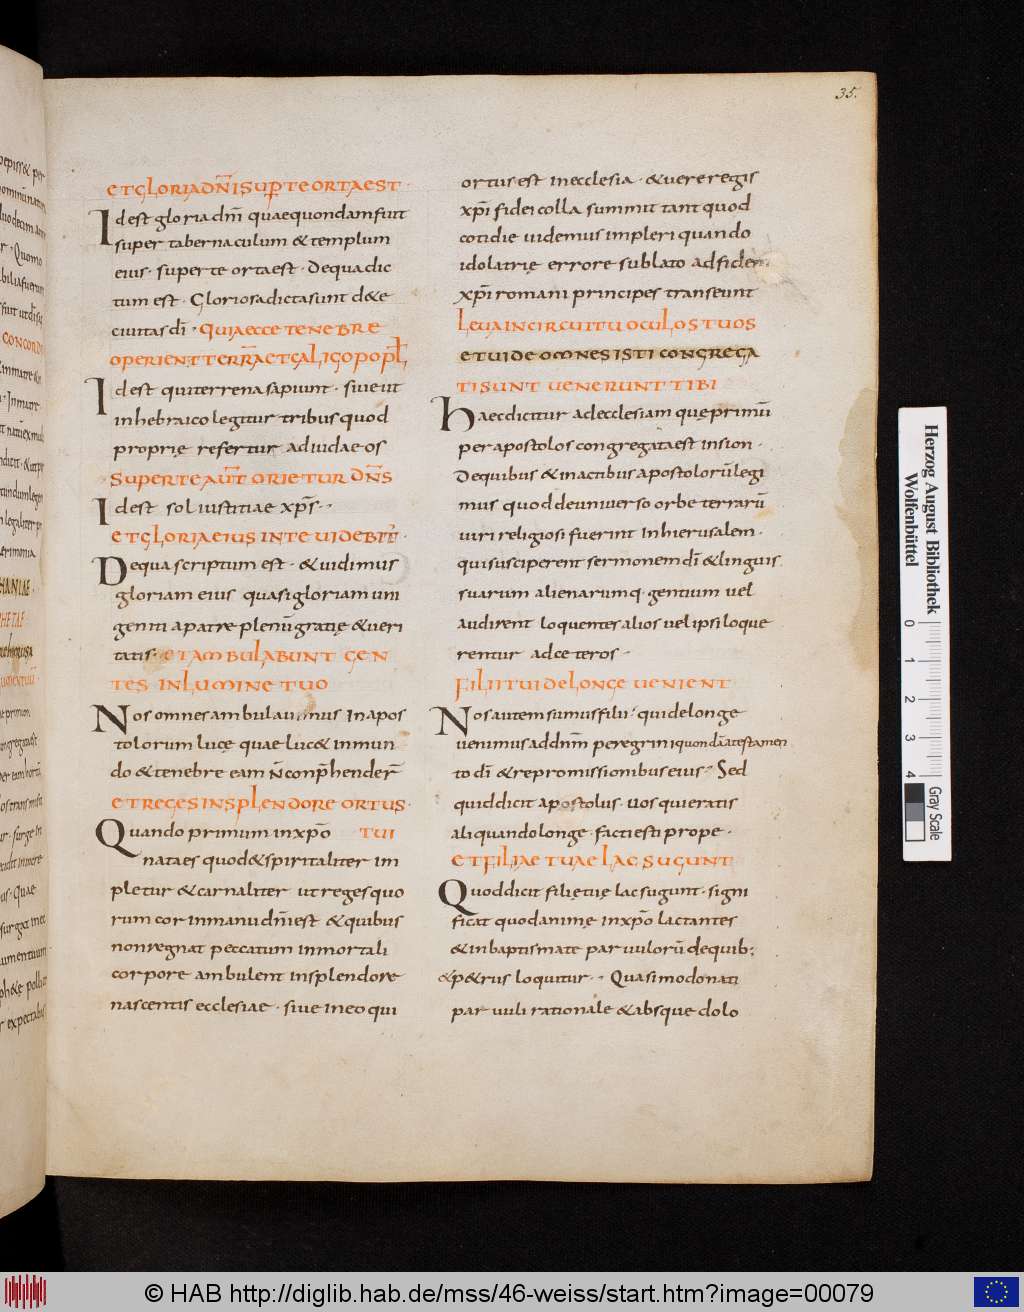 35.
ETGLORIADÑI SUPERTEORTAEST·
Idest gloriadñi quaequondamfuit
super tabernaculum & templum
eius· superte ortaest· Dequadic
tum est· Gloriosadictasunt d&e
ciuitasdī· QUIAECCETENEBRE
OPERIENTTERRĀETCALIGOPOPL̄
Idest quiterrenasapiunt· siueut
inhebraicolegitur tribusquod
proprię refertur adiudaeos
SUPERTEAUT̄ ORIETUR DÑS
Idest sol iustitiae xp̄s··
ETGLORIAEIUS INTEUIDEBIT̄·
Dequascriptum est· & uidimus
gloriam eius quasigloriam uni
geniti apatre plenūgratię &ueri
tatis· ETAMBULABUNT GEN
TES INLUMINE TUO
Nosomnesambulauimus Inapos
tolorum luce quae luc& inmun
do &tenebre eam ñconp̄henderī
ETREGESINSPLENDORE ORTUS·
Quando primum inxp̄o TUI
nataes quod&spiritaliter im
pletur &carnaliter utregesquo
rum cor inmanu dñiest &quibus
nonregnat peccatum inmortali
corpore ambulent insplendore
nascentis ecclesiae· siue ineoqui
ortusest inecclesia· &uereregis
xp̄i fideicolla summittant quod
cotidie uidemus impleri quando
idolatrię errore sublato adfidem
xp̄iromani principes transeunt
LEUAINCIRCUITU OCULOSTUOS
ETUIDE OMNES ISTI CONGREGA
TISUNT UENERUNT TIBI
Haecdicitur adecclesiam quęprimū
perapostolos congregataest insion·
Dequibus &inactibus apostolorūlegi
mus quoddeuniuerso orbe terrarū
uiri religiosi fuerint Inhierusalem·
quisusciperent sermonemdī &linguis
suarum alienarumq· gentium uel
audirent loquentes alios uel ipsiloque
rentur adceteros·
FILIITUIDELONGE UENIENT
Nosautemsumusfilii· quidelonge
uenimusaddñm peregriniquondāatestamen
to dī &repromissionibuseius·· Sed
quiddicit apostolus· uosquieratis
aliquandolonge· factiestisprope·
ETFILIAE TUAE LAC SUGUNT
Quoddicit filiętuę lacsugunt· signi
ficat quodanimę inxp̄o lactantes
&inbaptismate paruulorū dequib;
&p&rus loquitur·· Quasimodonati
paruuli rationale &absque dolo
Herzog August Bibliothek
Wolfenbüttel
0 1 2 3 4
Gray Scale
© HAB http://diglib.hab.de/mss/46-weiss/start.htm?image=00079